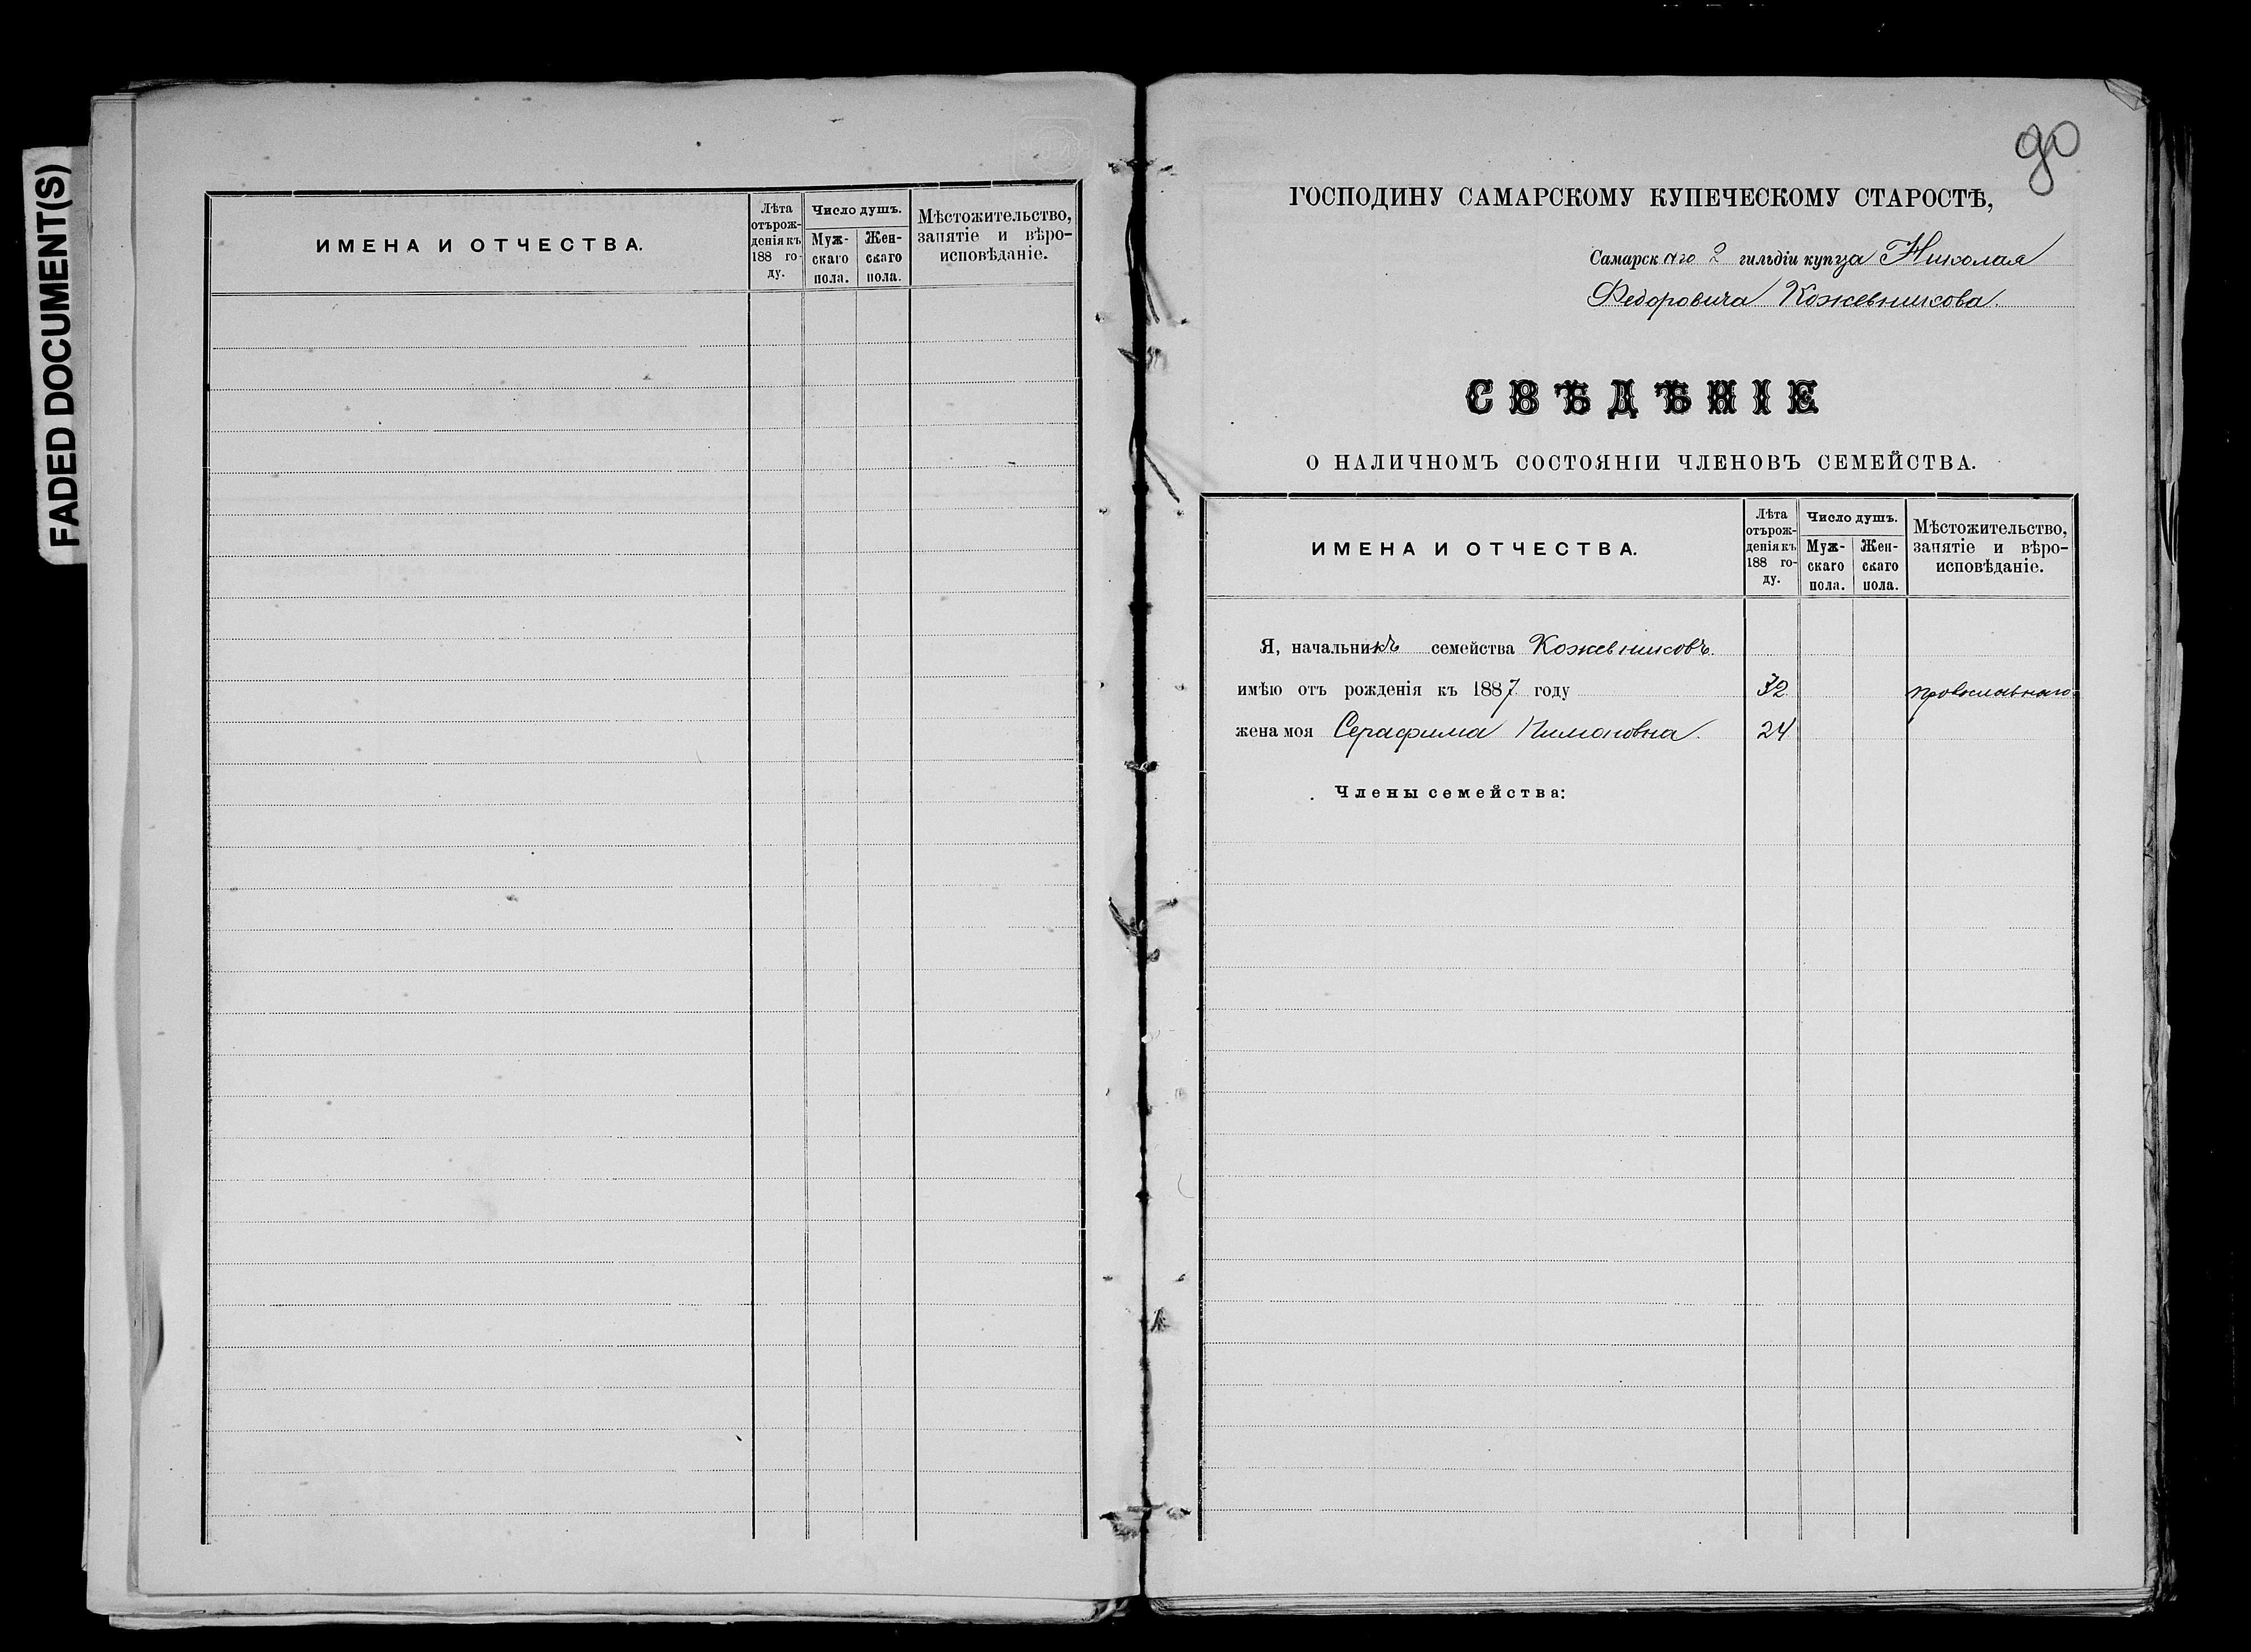 FADED DOCUMENT(S)
ИМЕНА И ОТЧЕСТВА.
Лѣта отърожденія къ 188 году.
Число душъ.
Мужскаго пола.
Женскаго пола.
Мѣстожительство, занятіе и вѣроисповѣданіе.
90
ГОСПОДИНУ САМАРСКОМУ КУПЕЧЕСКОМУ СТАРОСТѢ,
Самарскаго 2 гильдіи купца Николая
Федоровича Кожевникова.
СВѢДѢНІЕ
О НАЛИЧНОМЪ СОСТОЯНІИ ЧЛЕНОВЪ СЕМЕЙСТВА.
ИМЕНА И ОТЧЕСТВА.
Лѣта отърожденія къ 188 году.
Число душъ.
Мужскаго пола.
Женскаго пола.
Мѣстожительство, занятіе и вѣроисповѣданіе.
Я, начальникъ семейства Кожевниковъ.
имѣю отъ рожденія къ 1887 году 32 православнаго
жена моя Серафима Пимоновна. 24
Члены семейства: